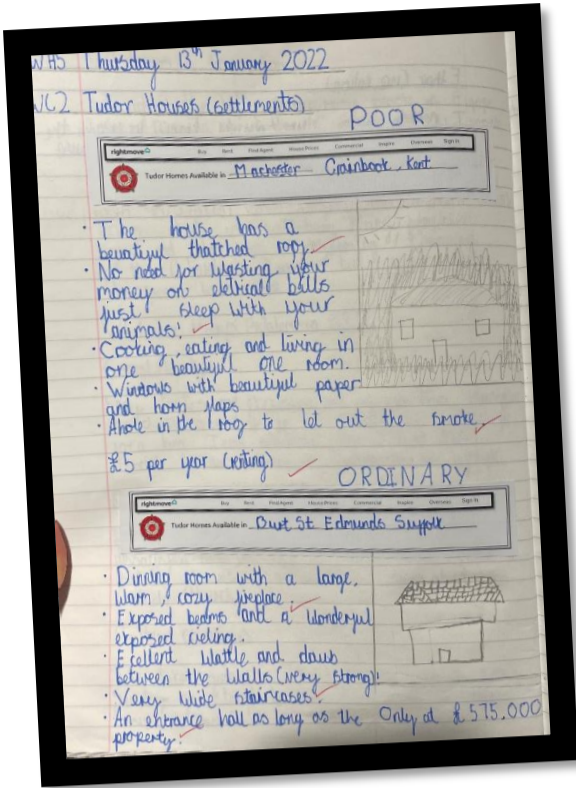 WHS Thursday 13th January 2022
Tudor Houses (settlements)
POOR
rightmove
Buy Rent Find Agent House Prices Commercial Inspire Overseas Sign In
Tudor Homes Available in Machester Crainbook, Kent
• The house has a
beuatiful thatched roof
• No need for wasting your
money on eletrical bills
just sleep with your
animals!
• Cooking, eating and living in
one beautiful one room.
• Windows with beautiful paper
and horn flaps
• Ahole in the roof to let out the smoke
£5 per year (renting)
ORDINARY
rightmove
Buy Rent Find Agent House Prices Commercial Inspire Overseas Sign In
Tudor Homes Available in Burt St Edmunds Suffolk
• Dinning room with a large,
warm, cozy fireplace.
• Exposed beams and a wonderful
exposed cieling.
• Excellent wattle and daub
between the walls (very strong)!
• Very wide staircases.
• An entrance hall as long as the Only at £575.000
property.